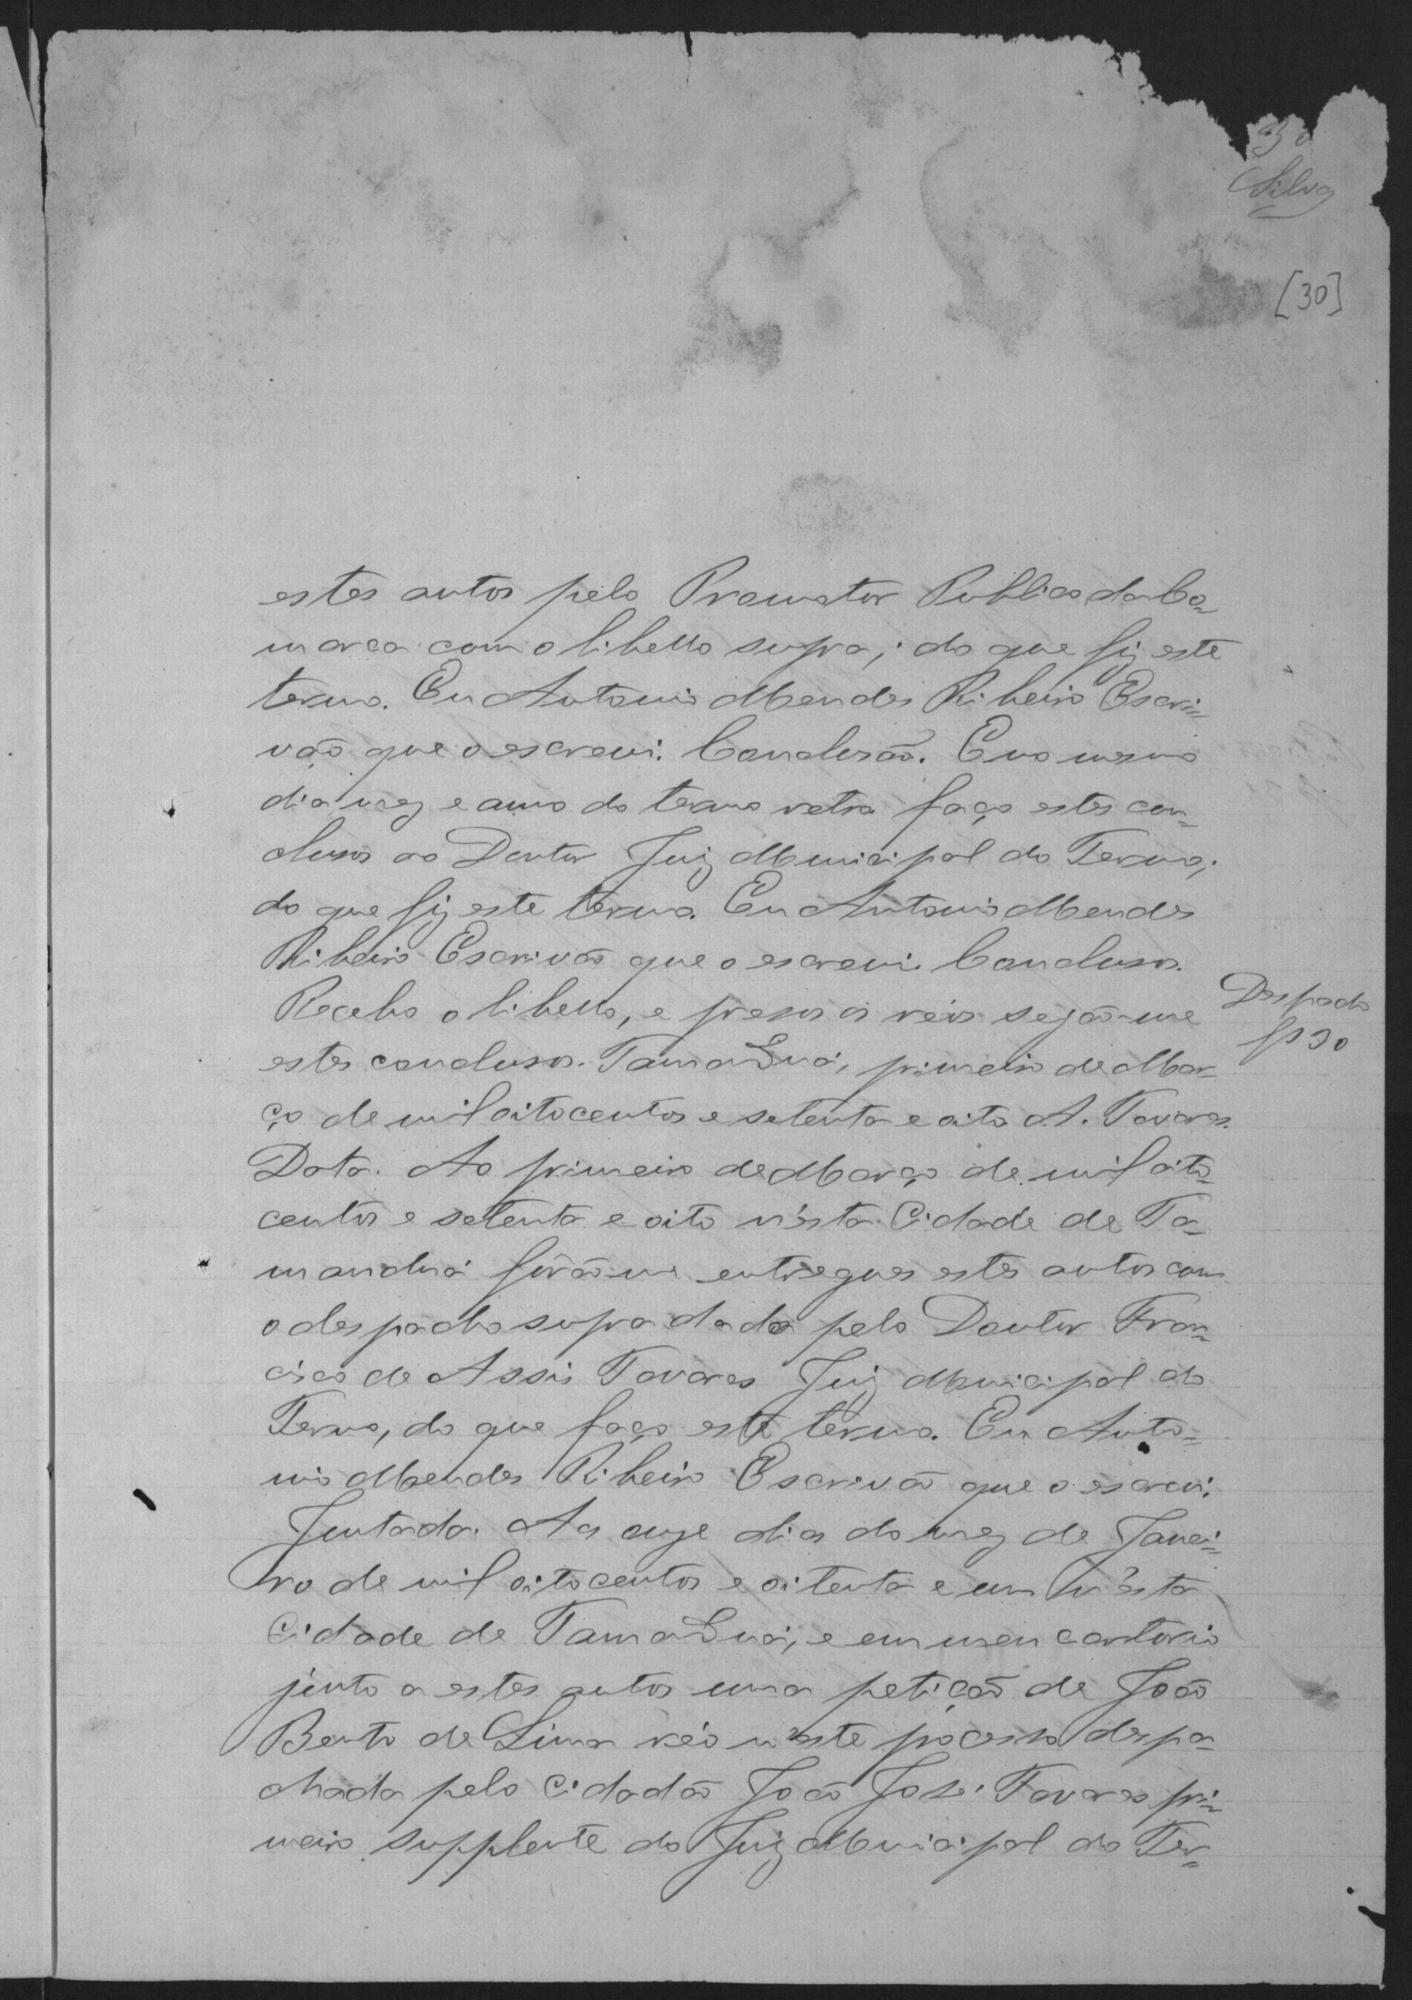 30
Silva
[30]
estes autos pelo Promotor Publico da Co-
marca com o libello supra; do que fiz este
termo. Eu Antonio Mendes Ribeiro Escri-
vão que o escrevi. Conclusão. E no mesmo
dia mez e anno do termo retro faço estes con-
clusos ao Doutor Juiz Municipal do Termo;
do que fiz este termo. Eu Antonio Mendes
Ribeiro Escrivão que o escrevi. Conclusos.
Recebo o libello, e presos os réos sejão-me
Despacho
fs 30
estes conclusos. Tamanduá, primeiro de Mar-
ço de mil oitocentos e setenta e oito A. Tavares.
Data. Ao primeiro de Março de mil oito-
centos e setenta e oito n'esta Cidade de Ta-
manduá forão me entregues estes autos com
o despacho supra dado pelo Doutor Fran-
cisco de Assis Tavares Juiz Municipal do
Termo, do que faço este termo. Eu Anto-
nio Mendes Ribeiro Escrivão que o escrevi.
Juntada. Aos onze dias do mez de Janei-
ro de mil oitocentos e oitenta e um n'esta
Cidade de Tamanduá, e em meu cartorio
junto a estes autos uma petição de João
Bento de Lima réo n'este processo despa-
chada pelo Cidadão João José Tavares pri-
meiro supplente do Juiz Municipal do Ter-